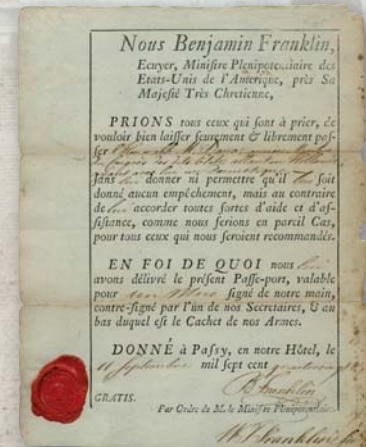 Nous Benjamin Franklin,
Ecuyer, Ministre Plénipotentiaire des
Etats-Unis de l'Amérique, près Sa
Majesté Très Chretienne,
PRIONS tous ceux qui sont à prier, de
vouloir bien laisser seurement & librement pas-
ser
sans lui donner ni permettre qu'il lui soit
donné aucun empêchement, mais au contraire
de lui accorder toutes sortes d'aide et d'as-
sistance, comme nous ferions en pareil Cas,
pour tous ceux qui nous seroient recommandés.
EN FOI DE QUOI nous lui
avons délivré le présent Passe-port, valable
pour un Mois signé de notre main,
contre-signé par l'un de nos Secretaires, & au
bas duquel est le Cachet de nos Armes.
DONNÉ à Passy, en notre Hôtel, le
septembre mil sept cent
B Franklin
GRATIS.
Par Ordre du M. le Ministre Plénipotentiaire.
W. T. Franklin